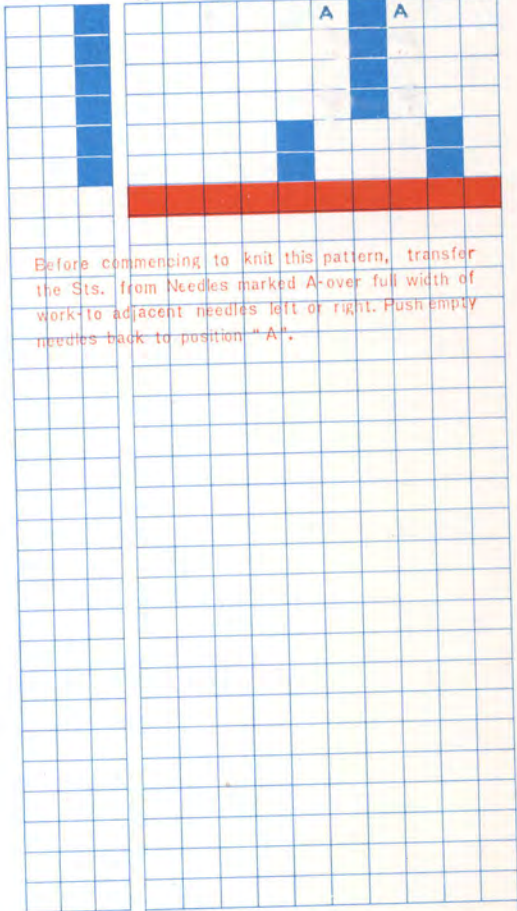 A A
Before commencing to knit this pattern, transfer
the Sts. from Needles marked A-over full width of
work-to adjacent needles left or right. Push empty
needles back to position "A".